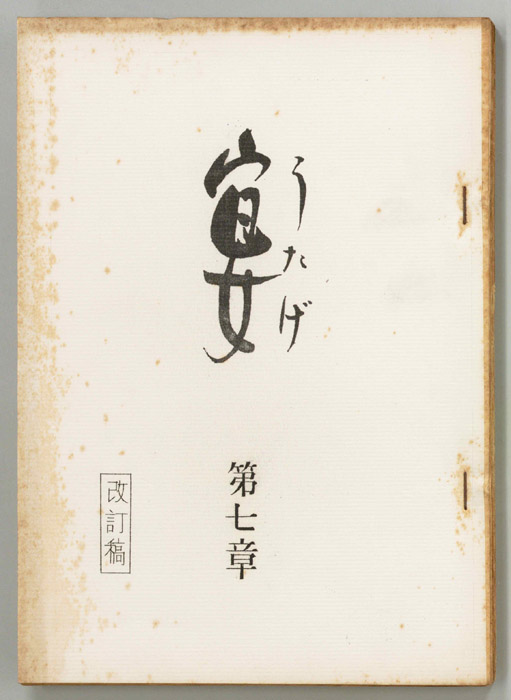 うたげ
宴
第七章
改訂稿